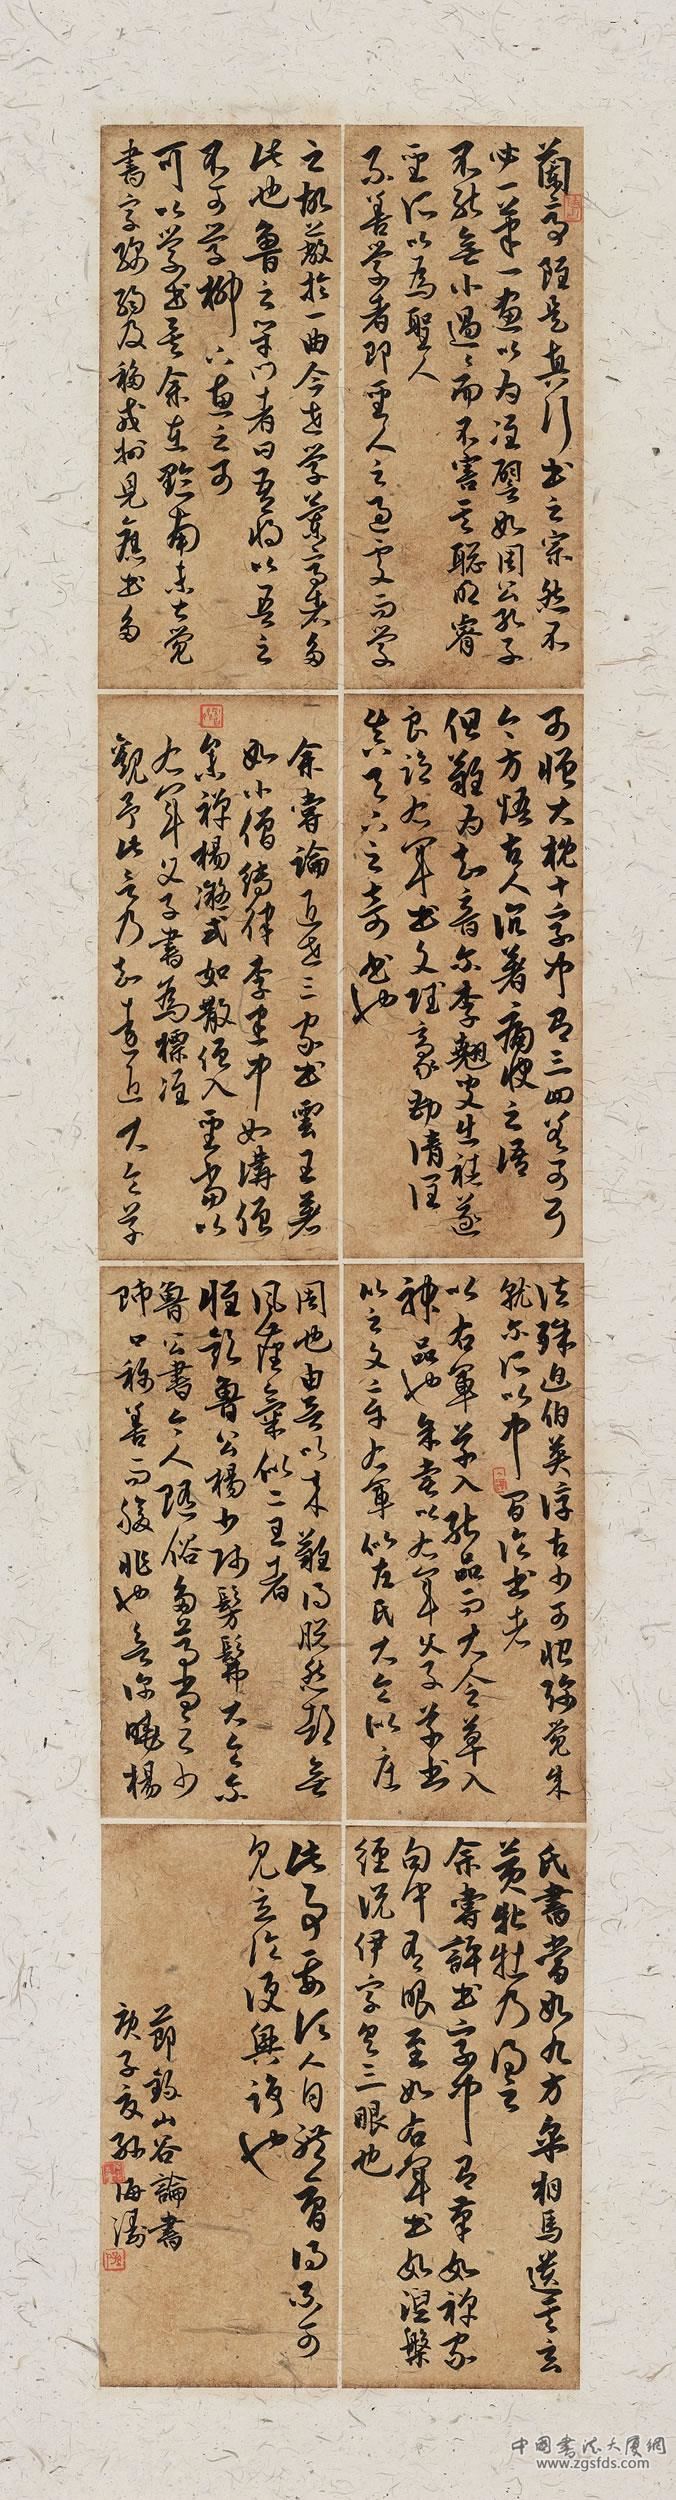 蘭亭雖是真行書之宗然不
必一筆一畫以為准譬如周公孔子
不能無小過過而不害其聰明睿
聖所以為聖人
不善學者即聖人之過處而學
之故蔽於一曲今世學蘭亭者多
此也魯之閉門者曰吾將以吾之
不可學柳下惠之可
可以學書矣余在黔南未甚覺
書字綿弱及移戎州見舊書多
可憎大概十字中有三四差可耳
今方悟古人沉著痛快之語
但難為知音爾李翹叟出褚遂
良臨右軍書文賦豪勁清潤
真天下之奇書也
余嘗論近世三家書雲王著
如小僧縛律李建中如講僧
參禪楊凝式如散僧入聖當以
右軍父子書為標准
觀予此言乃知遠近大令草
法殊迫伯英淳古少可恨弥覺成
就爾所以中間論書者
以右軍草入能品而大令草入
神品也余嘗以右軍父子草書
比之文章右軍似左氏大令似莊
周也由晉以來難得脫然都無
風塵氣似二王者
惟顏魯公楊少師髣髴大令爾
魯公書今人隨俗多尊尚之少
師口稱善而腹非也欲深曉楊
氏書當如九方皋相馬遺其玄
黃牝牡乃得之
余嘗評書字中有筆如禪家
句中有眼至如右軍書如涅槃
經說伊字具三眼也
此事要須人自體會得不可
見立論便興諍也
節錄山谷論書
庚子夏孫海濤
中国书法大厦網
www.zgsfds.com